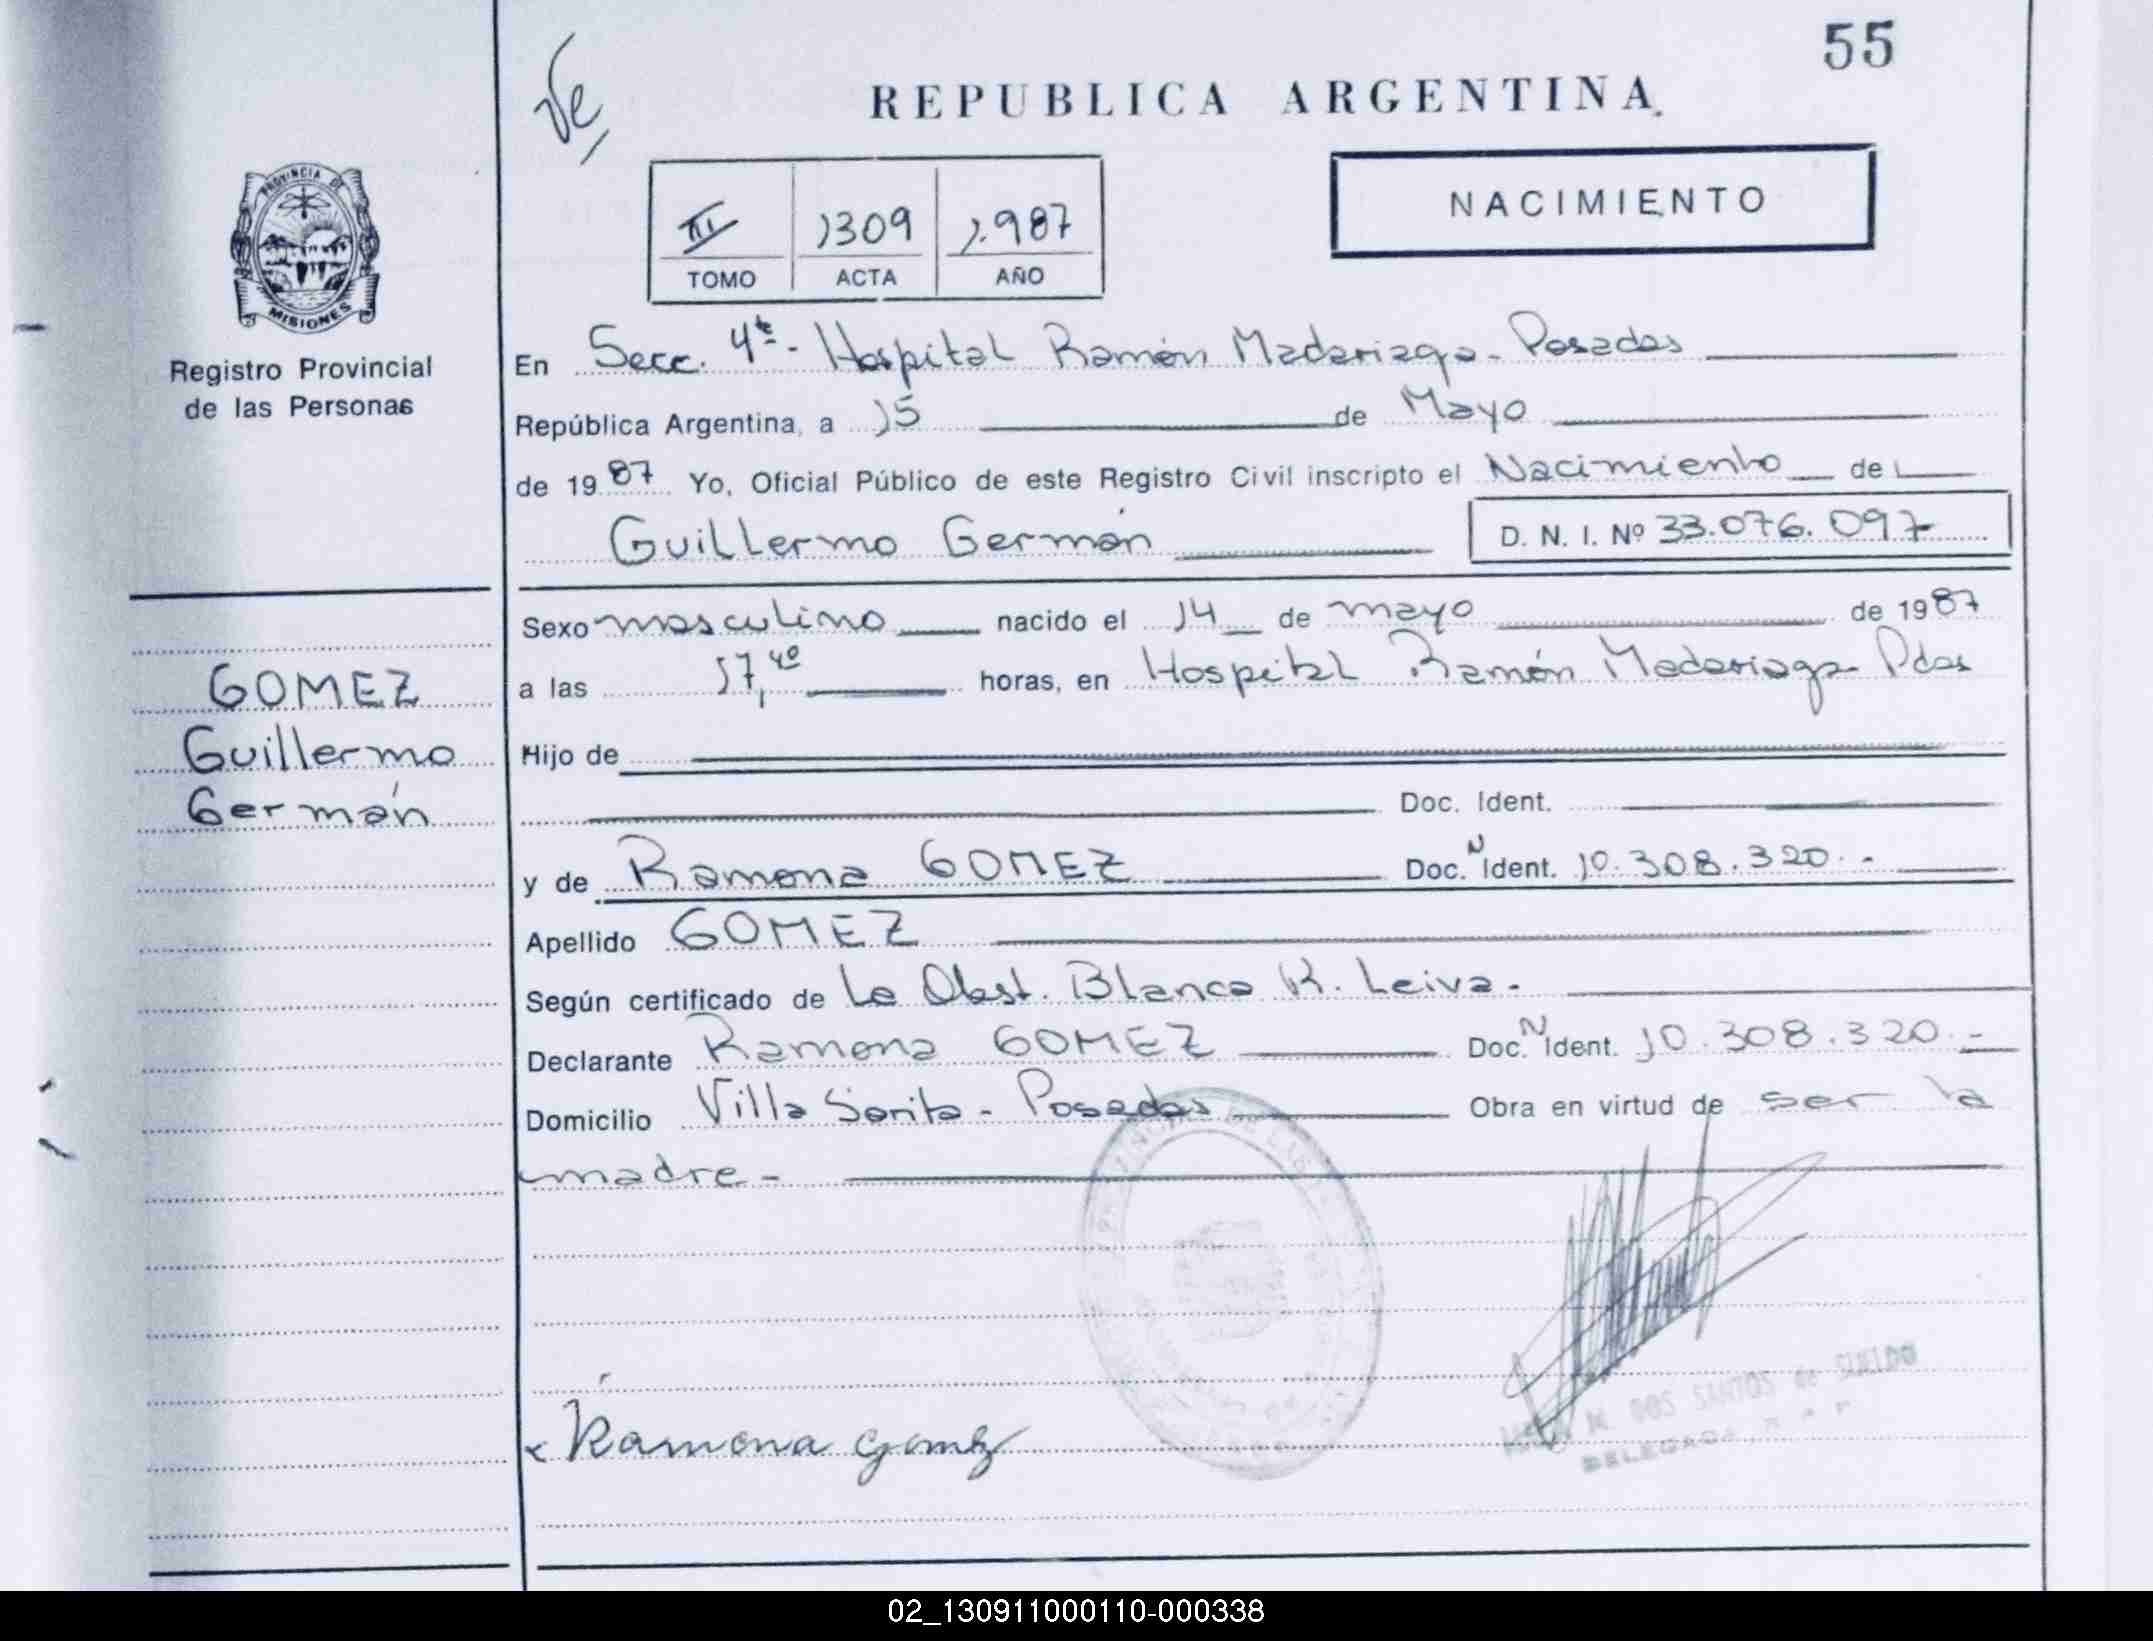 55
REPUBLICA ARGENTINA
NACIMIENTO
III 1309 1.987
TOMO ACTA AÑO
PROVINCIA DE
MISIONES
Registro Provincial
de las Personas
En Secc. 4ta - Hospital Ramón Madariaga - Posadas
República Argentina, a 15 de Mayo
de 1987 Yo, Oficial Público de este Registro Civil inscripto el Nacimiento de
Guillermo Germán D. N. I. Nº 33.076.097
Sexo masculino nacido el 14 de mayo de 1987
a las 17,40 horas, en Hospital Ramón Madariaga - Pdas
GOMEZ
Guillermo
Germán
Hijo de
Doc. Ident.
y de Ramona GOMEZ Doc. N Ident. 10.308.320.-
Apellido GOMEZ
Según certificado de La Obst. Blanca R. Leiva.
Declarante Ramona GOMEZ Doc. N Ident. 10.308.320.-
Domicilio Villa Sarita - Posadas Obra en virtud de ser la
madre -
x Ramona Gomez
M. DOS SANTOS de SUELDO
DELEGADA
02_130911000110-000338